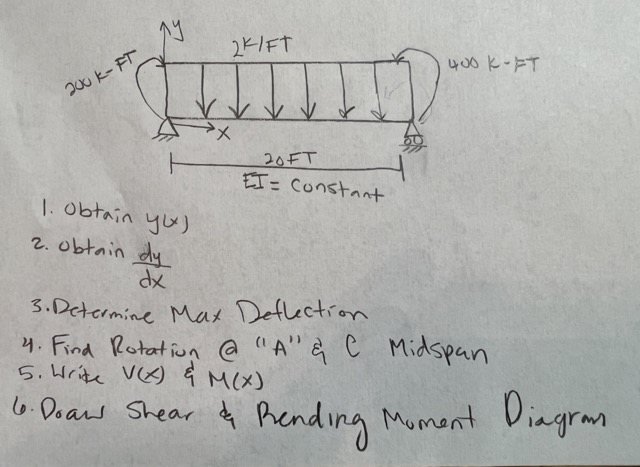 y
2K/FT
200 K-FT
400 K-FT
x
20FT
EI = Constant
1. Obtain y(x)
2. Obtain dy
dx
3. Determine Max Deflection
4. Find Rotation @ "A" & C Midspan
5. Write V(x) & M(x)
6. Draw Shear & Bending Moment Diagram